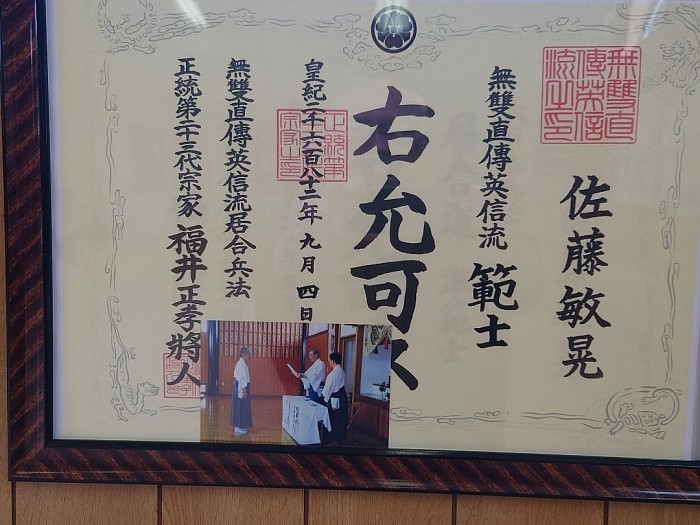 佐藤敏晃
無雙直傳英信流 範士
右允可ス
皇紀二千六百八十二年九月四日
無雙直傳英信流居合兵法
正統第二十三代宗家 福井正孝將人
無雙直
傳英信
流之印